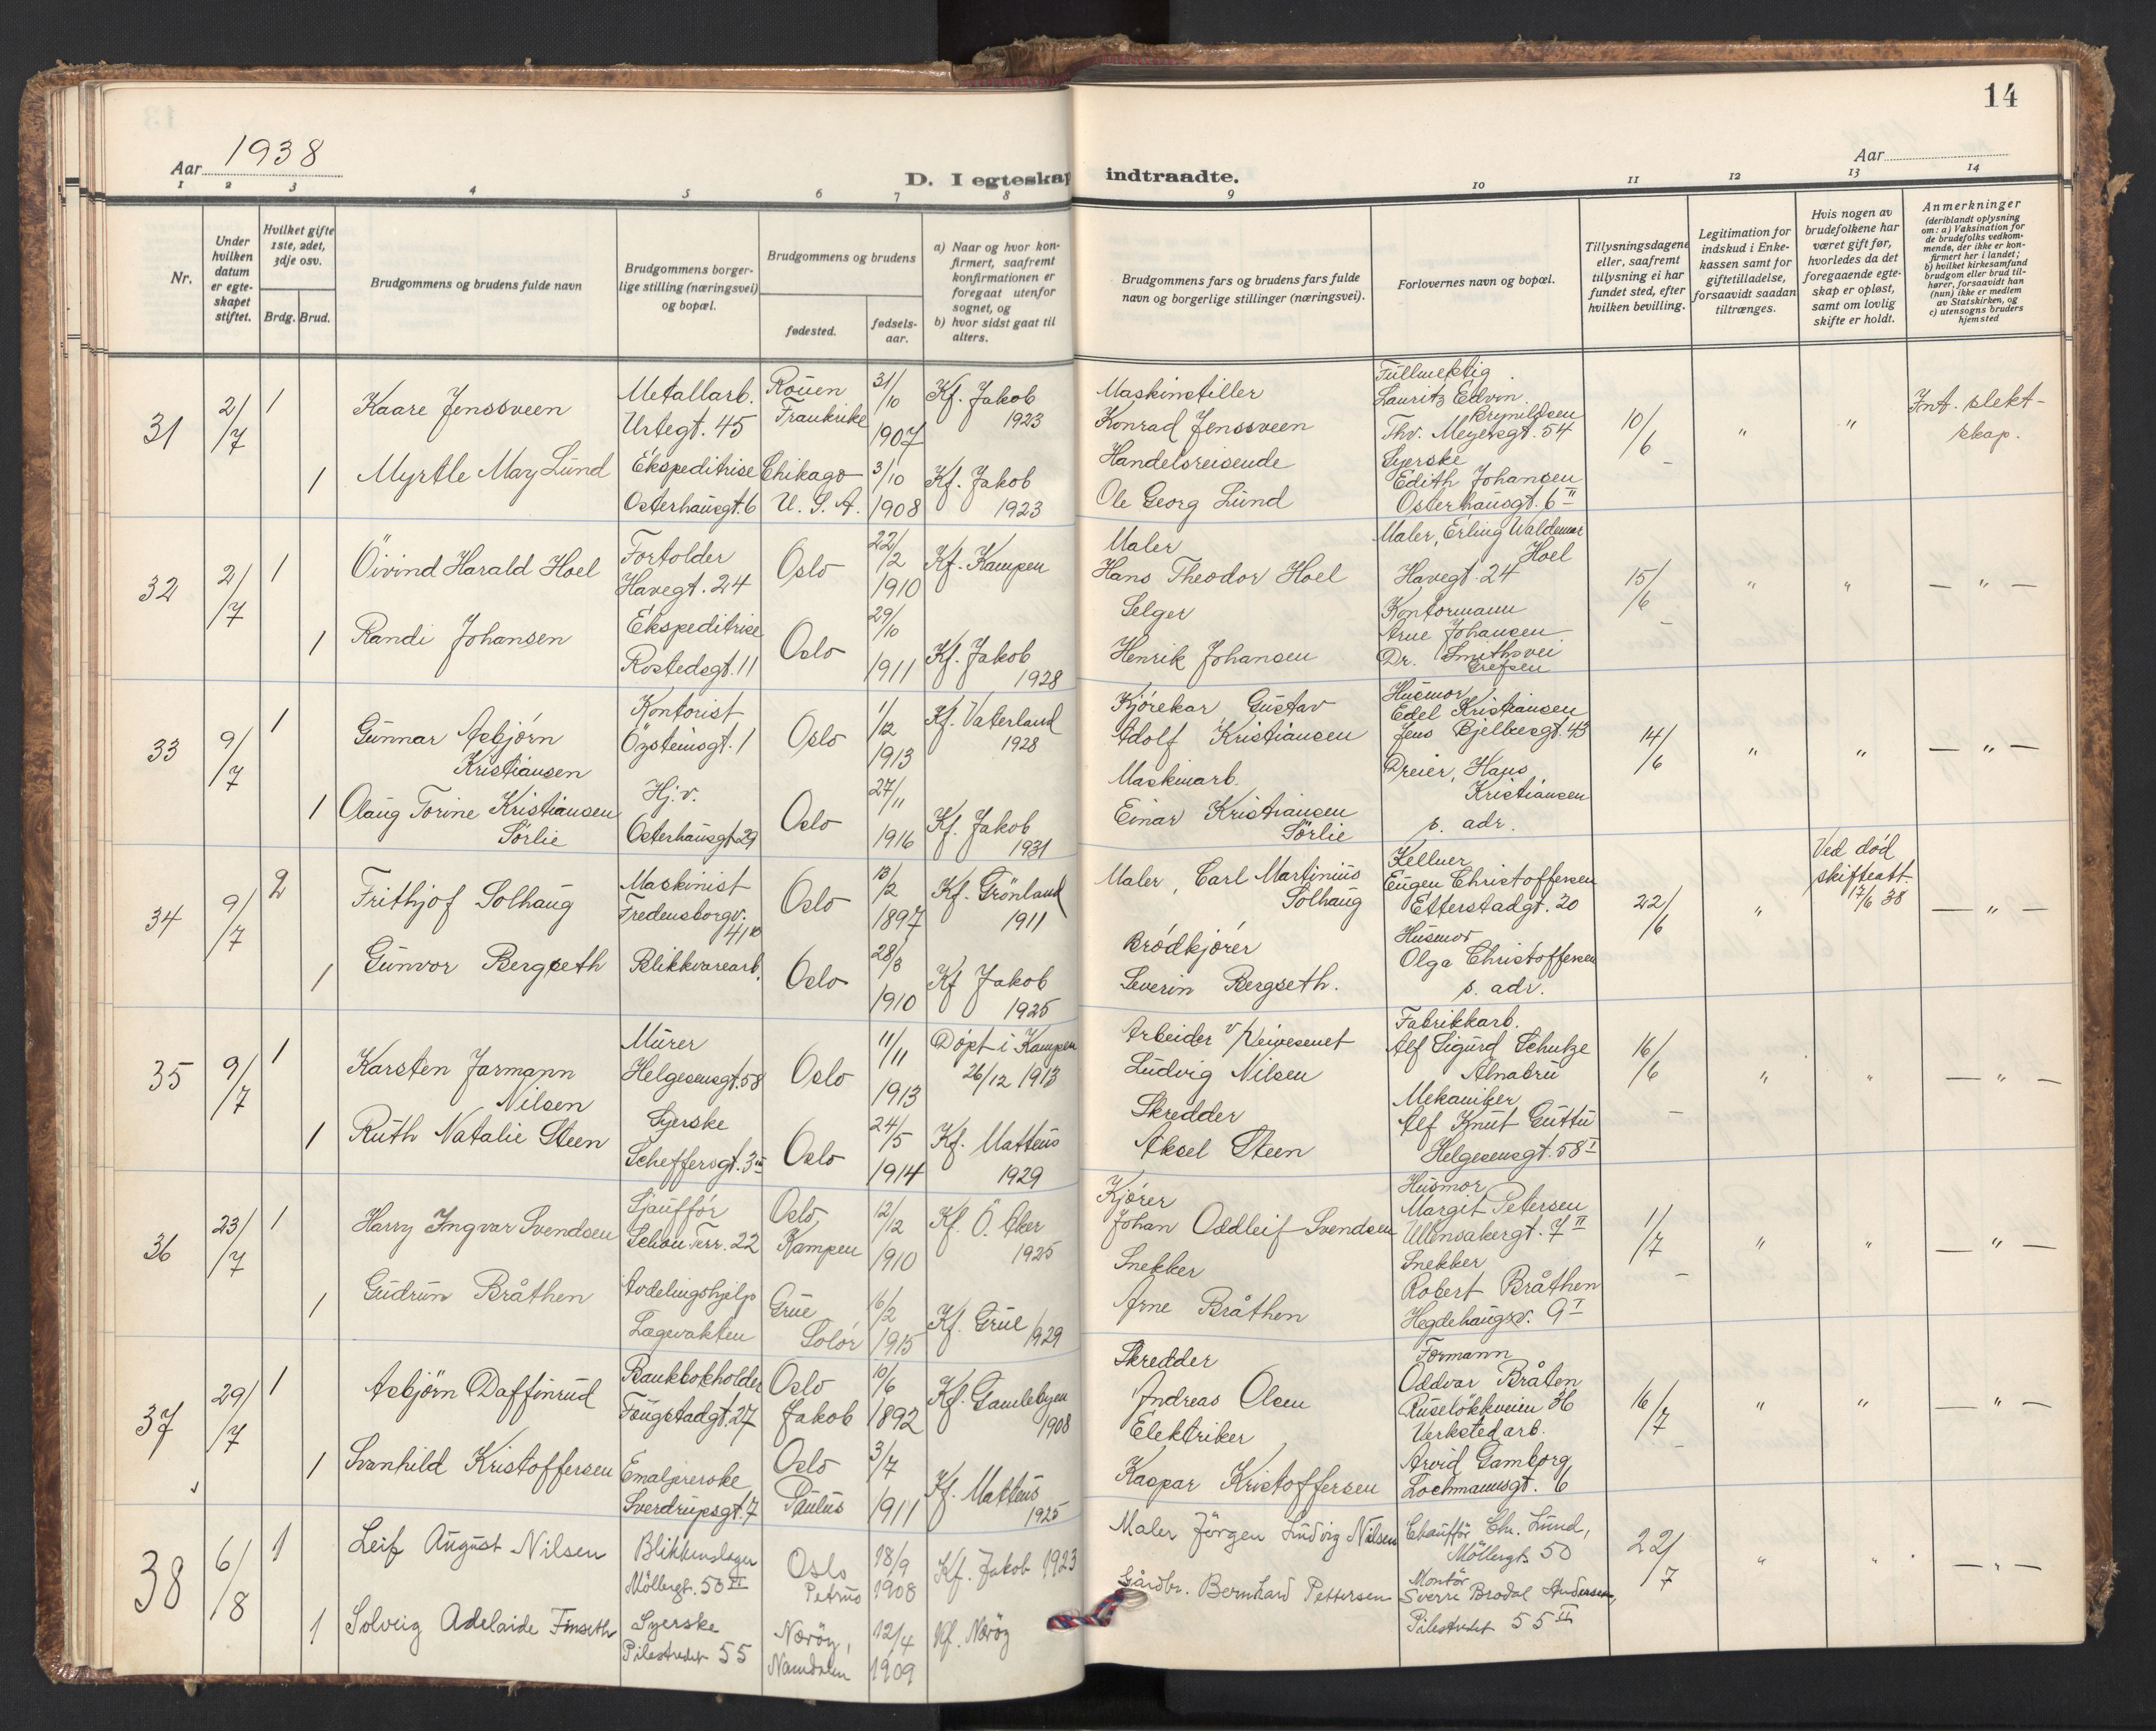 14
Aar 1938
Aar
D. I egteskap indtraadte.
1 2 3 4 5 6 7 8 9 10 11 12 13 14
Nr.
Under hvilken datum er egteskapet stiftet.
Hvilket gifte 1ste, 2det, 3dje osv.
Brdg. Brud.
Brudgommens og brudens fulde navn
Brudgommens borgerlige stilling (næringsvei) og bopæl.
Brudgommens og brudens
fødested.
fødselsaar.
a) Naar og hvor konfirmert, saafremt konfirmationen er foregaat utenfor sognet, og
b) hvor sidst gaat til alters.
Brudgommens fars og brudens fars fulde navn og borgerlige stillinger (næringsvei).
Forlovernes navn og bopæl.
Tillysningsdagene eller, saafremt tillysning ei har fundet sted, efter hvilken bevilling.
Legitimation for indskud i Enkekassen samt for giftetilladelse, forsaavidt saadan tiltrænges.
Hvis nogen av brudefolkene har været gift før, hvorledes da det foregaaende egteskap er opløst, samt om lovlig skifte er holdt.
Anmerkninger
(deriblandt oplysning om: a) Vaksination for de brudefolks vedkommende, der ikke er konfirmert her i landet; b) hvilket kirkesamfund brudgom eller brud tilhører, forsaavidt han (hun) ikke er medlem av Statskirken, og c) utensogns bruders hjemsted
31 2/7 1 Kaare Jenssveen Metallarb. Urtegt. 45 Rouen Frankrike 31/10 1907 Kf. Jakob 1923
Maskinstiller Konrad Jenssveen
Fullmektig Lauritz Edvin Brynildsen Thv. Meyersgt. 54
10/6 - " " Int. slektskap.
1 Myrtle May Lund Ekspeditrise Osterhausgt. 6 Chikago U. S. A. 3/10 1908 Kf. Jakob 1923
Handelsreisende Ole Georg Lund
Syerske Edith Johansen Osterhausgt. 6 II
32 2/7 1 Öivind Harald Hoel Fortolder Havegt. 24 Oslo 22/2 1910 Kf. Kampen
Maler Hans Theodor Hoel
Maler, Erling Waldemar Hoel Havegt. 24
15/6 - " " — " —
1 Randi Johansen Ekspeditrise Rostedsgt. 11 Oslo 29/10 1911 Kf. Jakob 1928
Selger Henrik Johansen
Kontormann Arne Johansen Dr. Smithsvei Grefsen
33 9/7 1 Gunnar Asbjørn Kristiansen Kontorist Öysteinsgt. 1 Oslo 1/12 1913 Kf. Vaterland 1928
Kjørekar Gustav Adolf Kristiansen
Husmor Edel Kristiansen Jens Bjelkesgt. 43
14/6 " " — " —
1 Olaug Torine Kristiansen Sørlie Hj.v. Osterhausgt 29 Oslo 27/11 1916 Kf. Jakob 1931
Maskinarb. Einar Kristiansen Sørlie
Dreier, Hans Kristiansen s. adr.
34 9/7 2 Frithjof Solhaug Maskinist Fredensborgv. 41 Oslo 13/2 1897 Kf. Grönland 1911
Maler, Carl Martinius Solhaug
Kellner Eugen Christoffersen Etterstadgt. 20
22/6 " Ved død skifteatt. 17/6 38 — " —
1 Gunvor Bergseth Blikkvarearb. Oslo 28/3 1910 Kf Jakob 1925
Brødkjører Severin Bergseth.
Husmor Olga Christoffersen s. adr.
35 9/7 1 Karsten Jarmann Nilsen Murer Helgesensgt. 58 Oslo 11/11 1913 Döpt i Kampen 26/12 1913
Arbeider v/ Veivesenet Ludvig Nilsen
Fabrikkarb. Alf Sigurd Schulze Alnabru
16/6 - " " — " —
1 Ruth Natalie Steen Syerske Scheffersgt. 3 III Oslo 24/5 1914 Kf. Matteus 1929
Skredder Aksel Steen
Mekaniker Alf Knut Guttu Helgesensgt. 58 I
36 23/7 1 Harry Ingvar Svendsen Sjauffør Schou Terr. 22 Oslo, Kampen 12/12 1910 Kf. Ö. Aker 1925
Kjører Johan Oddleif Svendsen
Husmor Margit Petersen Ullensakergt. 7 II
1/7 - " " — " —
1 Gudrun Bråthen Avdelingshjelp Lægevakten Grue Solør 16/2 1915 Kf. Grue 1929
Snekker Arne Bråthen
Snekker Robert Bråthen Hegdehaugsv. 9 I
37 29/7 1 Asbjörn Daffinrud Bankbokholder Fougstadgt. 27 Oslo Jakob 10/6 1892 Kf. Gamlebyen 1908
Skredder Andreas Olsen
Formann Oddvar Bråten Ruseløkkveien 36
16/7 - " " — " —
1 Svanhild Kristoffersen Emaljererske Sverdrupsgt. 7 Oslo Paulus 3/7 1911 Kf. Matteus 1925
Elektriker Kaspar Kristoffersen
Verkstedarb. Arvid Gamborg Lochmannsgt. 6
38 6/8 1 Leif August Nilsen Blikkenslager Möllergt. 50 II Oslo Petrus 18/9 1908 Kf. Jakob 1923
Maler Jörgen Ludvig Nilsen
Chauffør Chr. Lund, Möllergt. 50
22/7 " " — " —
1 Solveig Adelaide Finseth Syerske Pilestredet 55 Nærøy, Namdalen 12/4 1909 Kf. Nærøy
Gårdbr. Bernhard Pettersen
Montør Sverre Brodal Andersen, Pilestredet 55 II